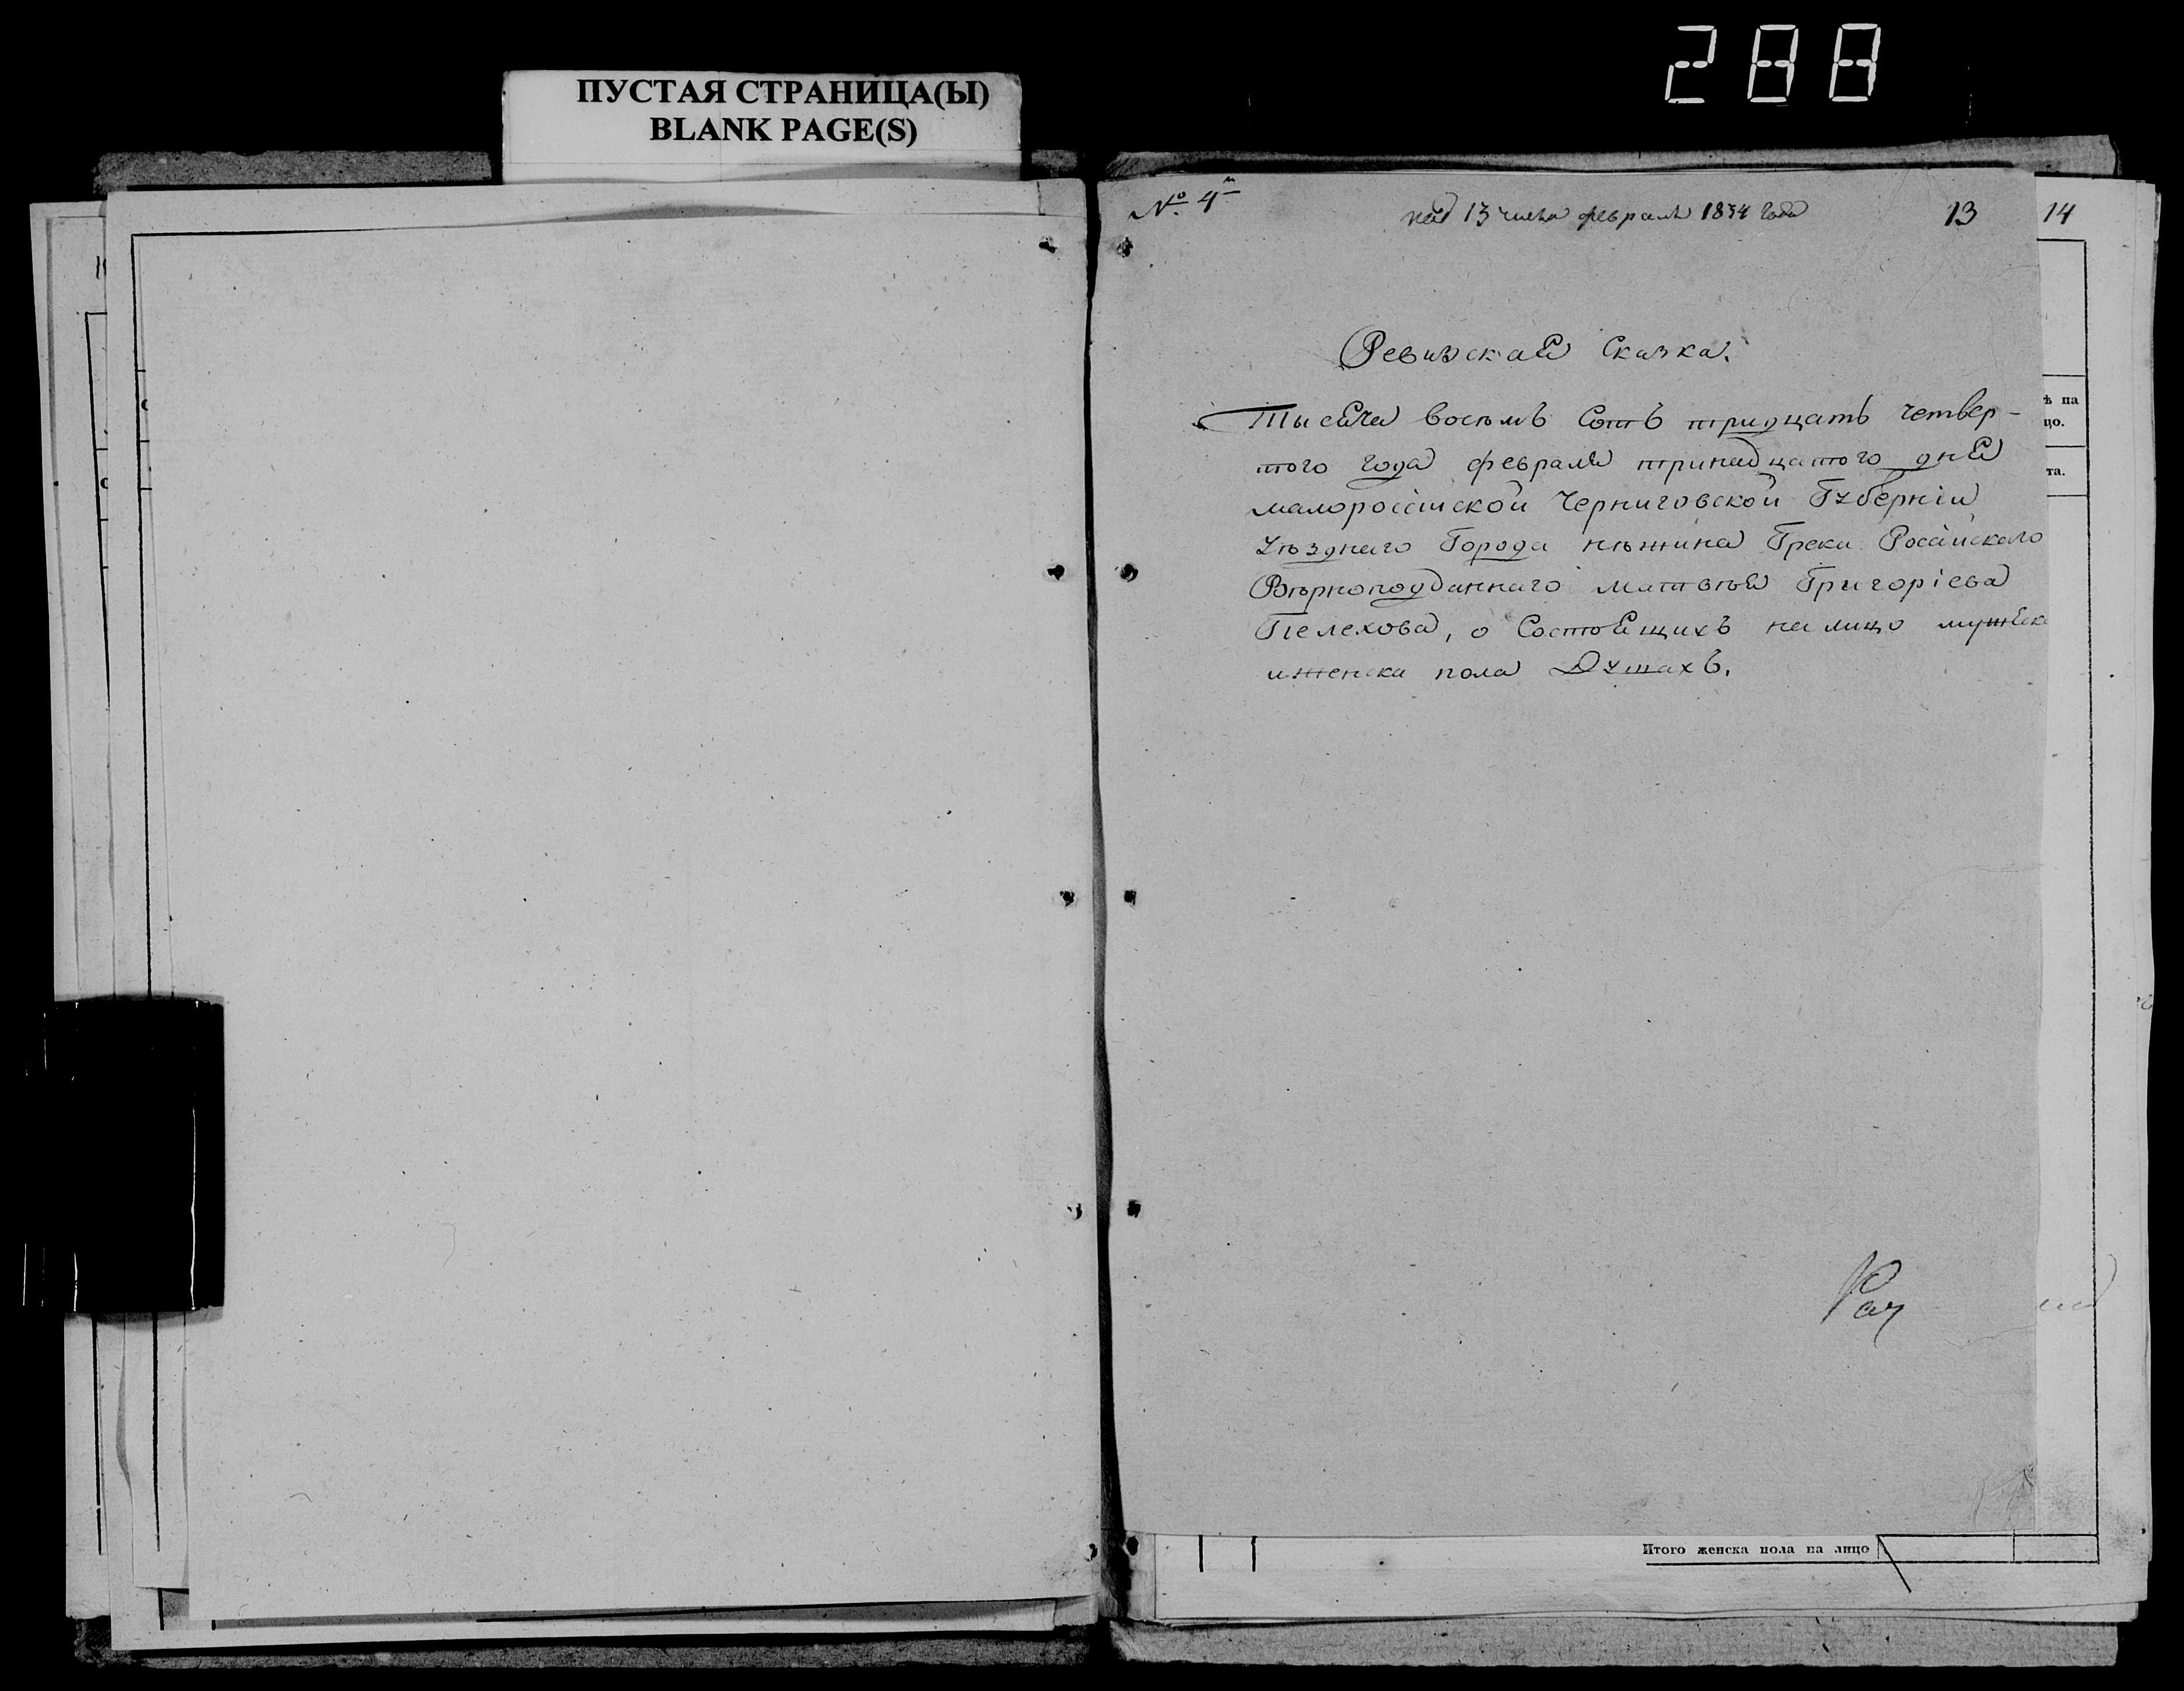 288
ПУСТАЯ СТРАНИЦА(Ы)
BLANK PAGE(S)
№ 4й
под 13 числа февраля 1834 года
13
14
Ревизская Сказка.
Тысяча восемь Сотъ тридцать четвер-
того года февраля тринадцатого дня
малоросciйской Черниговской Губернiи
Уѣзднаго Города нѣжина Грека Росciйскаго
Вѣрноподданнаго матвѣя Григорiева
Пелехова, о Состоящихъ на лицо мужеска
ѣ на
цо.
та.
иженска пола Душахъ.
Итого женска пола на лицо